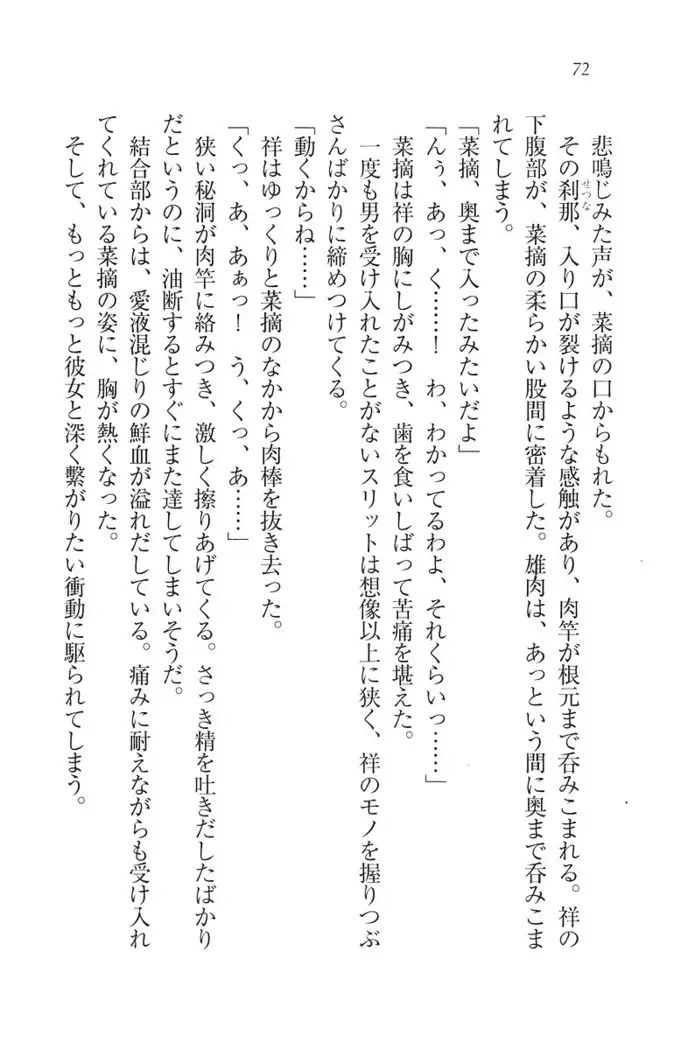 72
悲鳴じみた声が、菜摘の口からもれた。
その刹那、入り口が裂けるような感触があり、肉竿が根元まで呑みこまれる。祥の
せつな
下腹部が、菜摘の柔らかい股間に密着した。雄肉は、あっという間に奥まで呑みこま
れてしまう。
「菜摘、奥まで入ったみたいだよ」
「んぅ、あっ、く……！　わ、わかってるわよ、それくらいっ……」
菜摘は祥の胸にしがみつき、歯を食いしばって苦痛を堪えた。
一度も男を受け入れたことがないスリットは想像以上に狭く、祥のモノを握りつぶ
さんばかりに締めつけてくる。
「動くからね……」
祥はゆっくりと菜摘のなかから肉棒を抜き去った。
「くっ、あ、あぁっ！　う、くっ、あ……」
狭い秘洞が肉竿に絡みつき、激しく擦りあげてくる。さっき精を吐きだしたばかり
だというのに、油断するとすぐにまた達してしまいそうだ。
結合部からは、愛液混じりの鮮血が溢れだしている。痛みに耐えながらも受け入れ
てくれている菜摘の姿に、胸が熱くなった。
そして、もっともっと彼女と深く繋がりたい衝動に駆られてしまう。